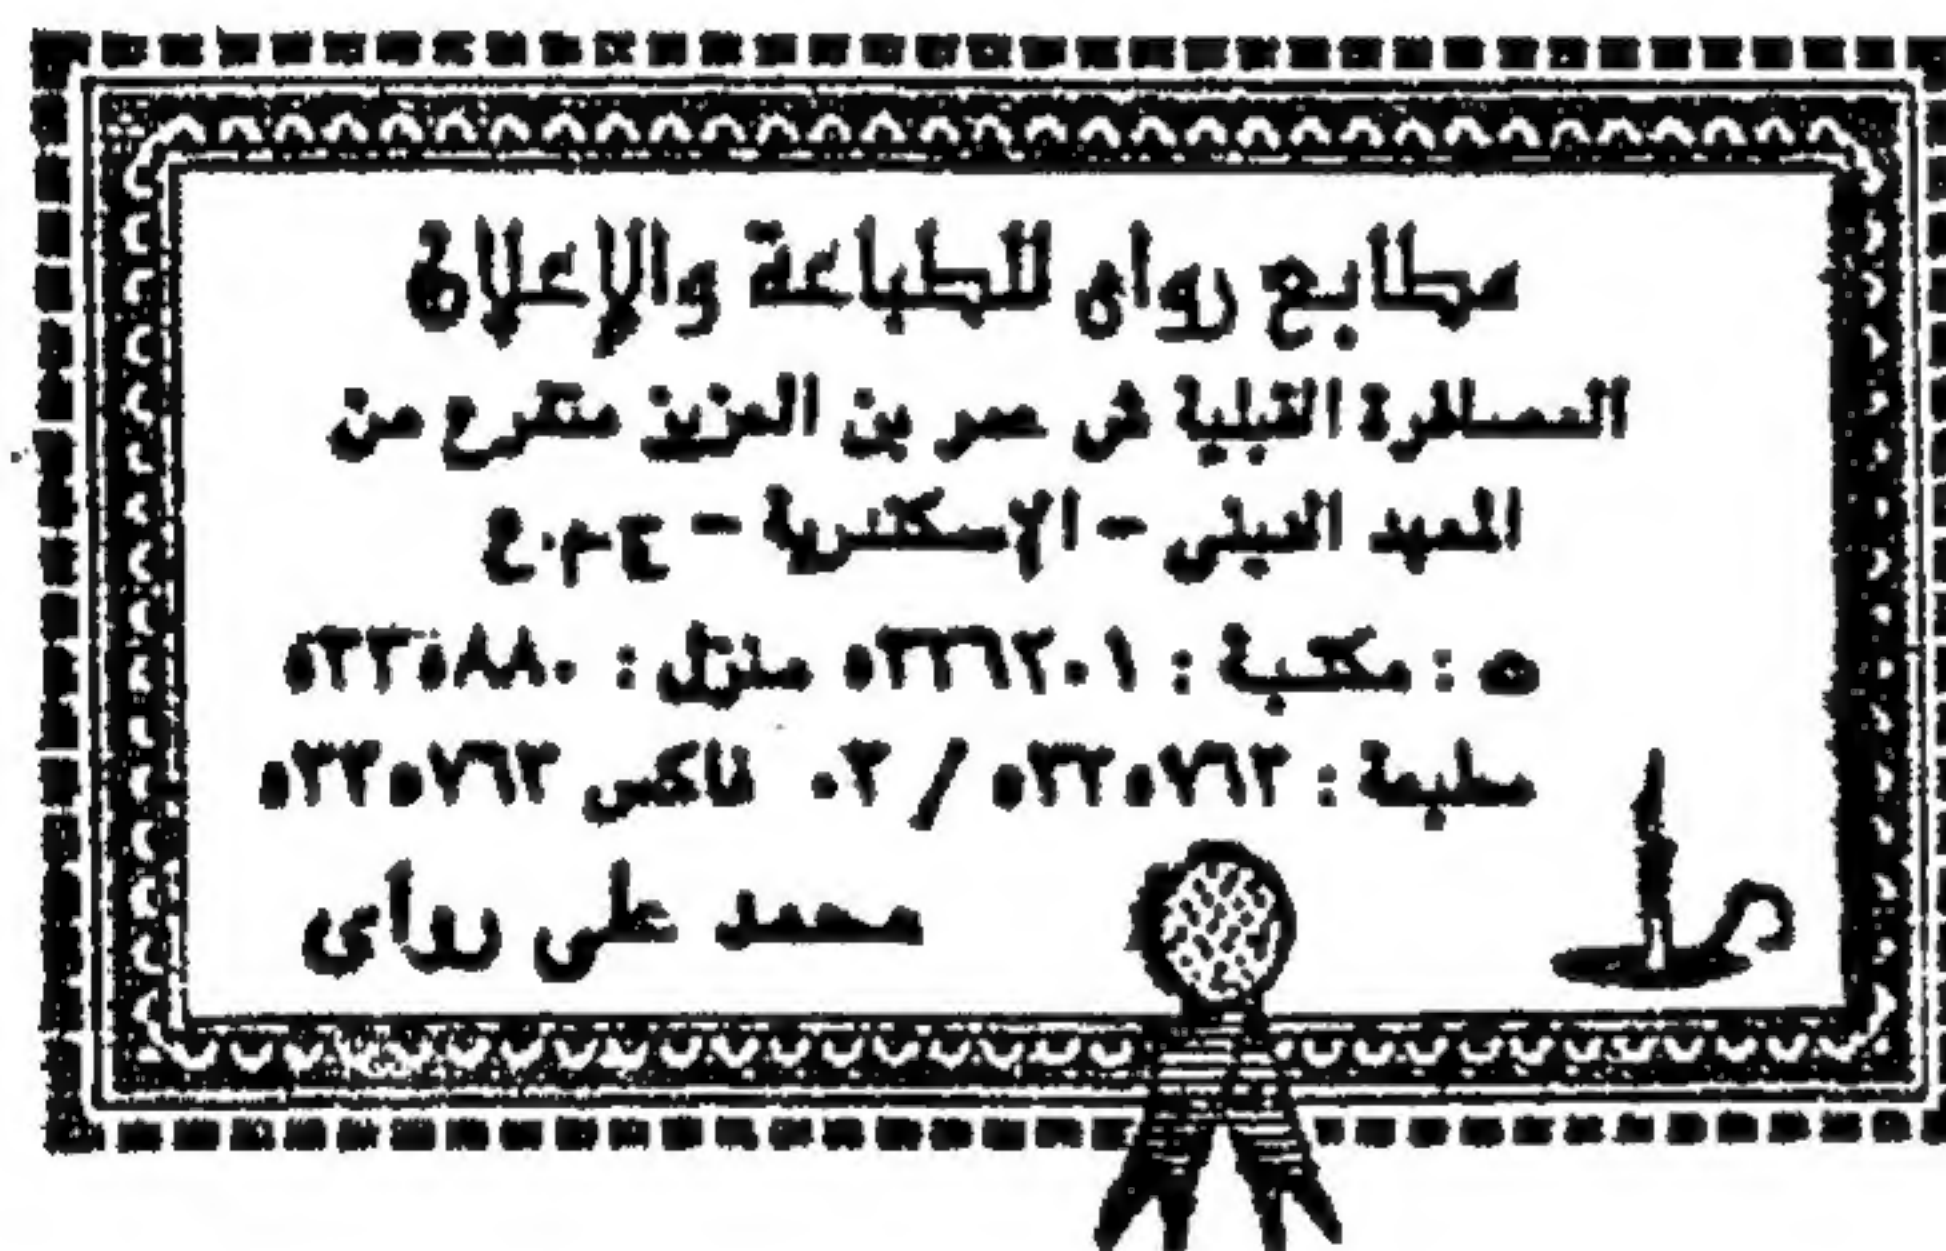 مطابع رواى للطباعة والإعلان
العصافرة القبلية ش عمر بن العزيز متفرع من
المعهد الدينى - الإسكندرية - ج.م.ع
ت : مكتبة : ٥٣٣٦٢٠١ منزل : ٥٣٣٥٨٨٠
مطبعة : ٥٣٣٥٧٦٣ / ٠٣ فاكس ٥٣٣٥٧٦٣
محمد على رواى